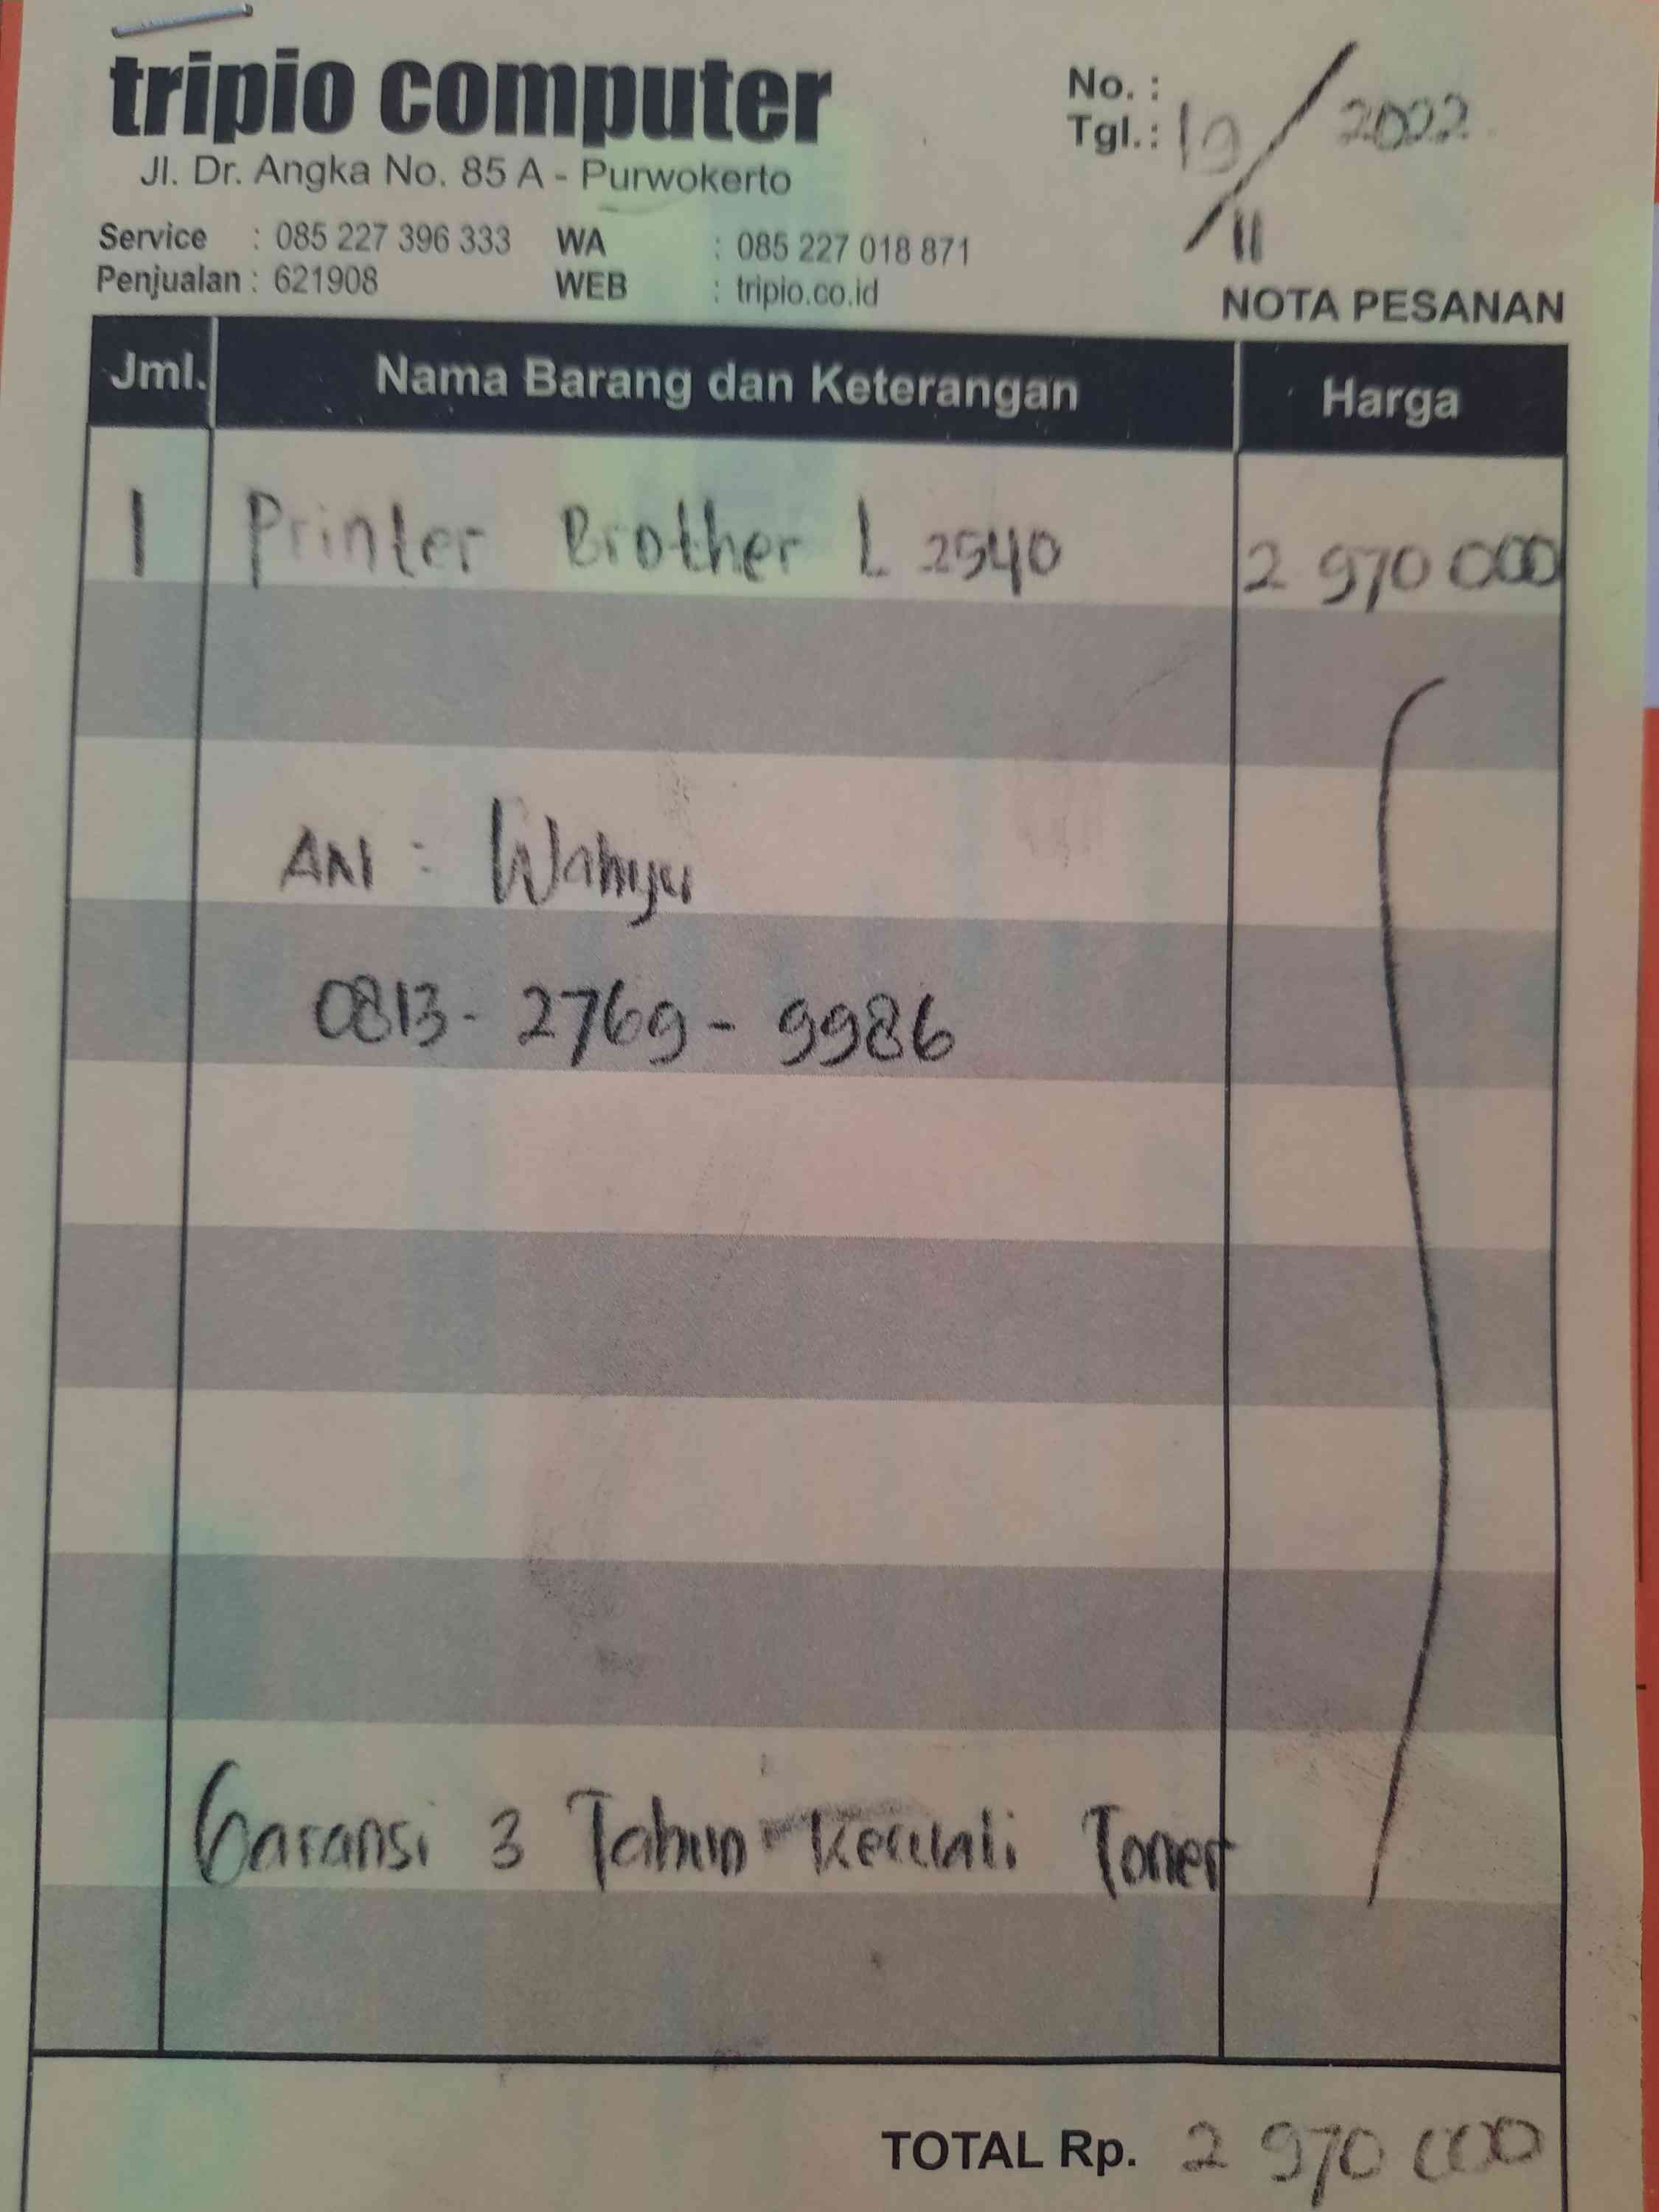 tripio computer
Jl. Dr. Angka No. 85 A - Purwokerto
Service : 085 227 396 333 WA : 085 227 018 871
Penjualan : 621908 WEB : tripio.co.id
No. :
Tgl. : 19 / 11 2022
NOTA PESANAN
Jml. Nama Barang dan Keterangan Harga
1 Printer Brother L 2540 2 970 000
AN : Wahyu
0813 - 2769 - 9986
Garansi 3 Tahun Kecuali Toner
TOTAL Rp. 2 970 000